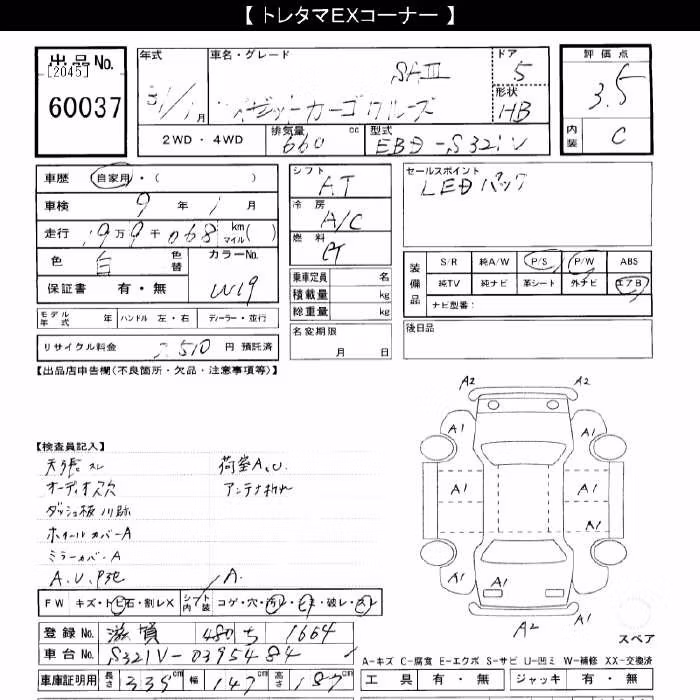 【 トレタマEXコーナー 】
出品No.
[2045]
60037
年式
月
車名・グレード
SAⅢ
ハイゼットカーゴクルーズ
ドア
5
形状
HB
2WD・4WD
排気量
660 cc
型式
EBD-S321V
評価点
3.5
内装
C
車歴 自家用・( )
車検 9 年 1 月
走行 19万9千068 km マイル( )
色 白 色替 カラーNo.
W19
保証書 有・無
モデル年式 年 ハンドル 左・右 ディーラー・並行
リサイクル料金 510 円 預託済
シフト
AT
冷房
A/C
燃料
乗車定員 名
積載量 kg
総重量 kg
名変期限
月 日
セールスポイント
LEDパック
装備品
S/R 純A/W P/S P/W ABS
純TV 純ナビ 革シート 外ナビ エアB
ナビ型番：
後日品
【出品店申告欄(不良箇所・欠品・注意事項等)】
【検査員記入】
天張スレ
オーディオ欠
ダッシュ板 跡
ホイールカバーA
ミラーカバーA
A.U.P他
荷室A.U.
アンテナ折れ
A.
FW キズ・トビ石・割レX シート内装 コゲ・穴・汚レ・ビキ・破レ・スレ
登録No. 滋賀 480 ち 1664
車台No. S321V-0395484
車庫証明用 長さ 339 cm 幅 147 cm 高さ 187 cm
A2 A2
A1 A1
A1 A1
A1
A1
A2
スペア
A-キズ C-腐食 E-エクボ S-サビ U-凹ミ W-補修 XX-交換済
工具 有・無 ジャッキ 有・無